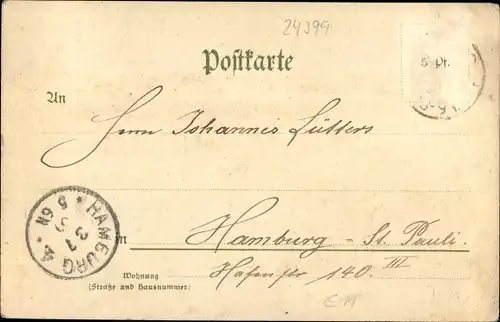 24399
Postkarte
5 Pf.
An
Herrn Johannes Lütters
HAMBURG 4.
in Hamburg - St. Pauli.
Wohnung
(Straße and Hausnummer)
Hafenstr 140. III